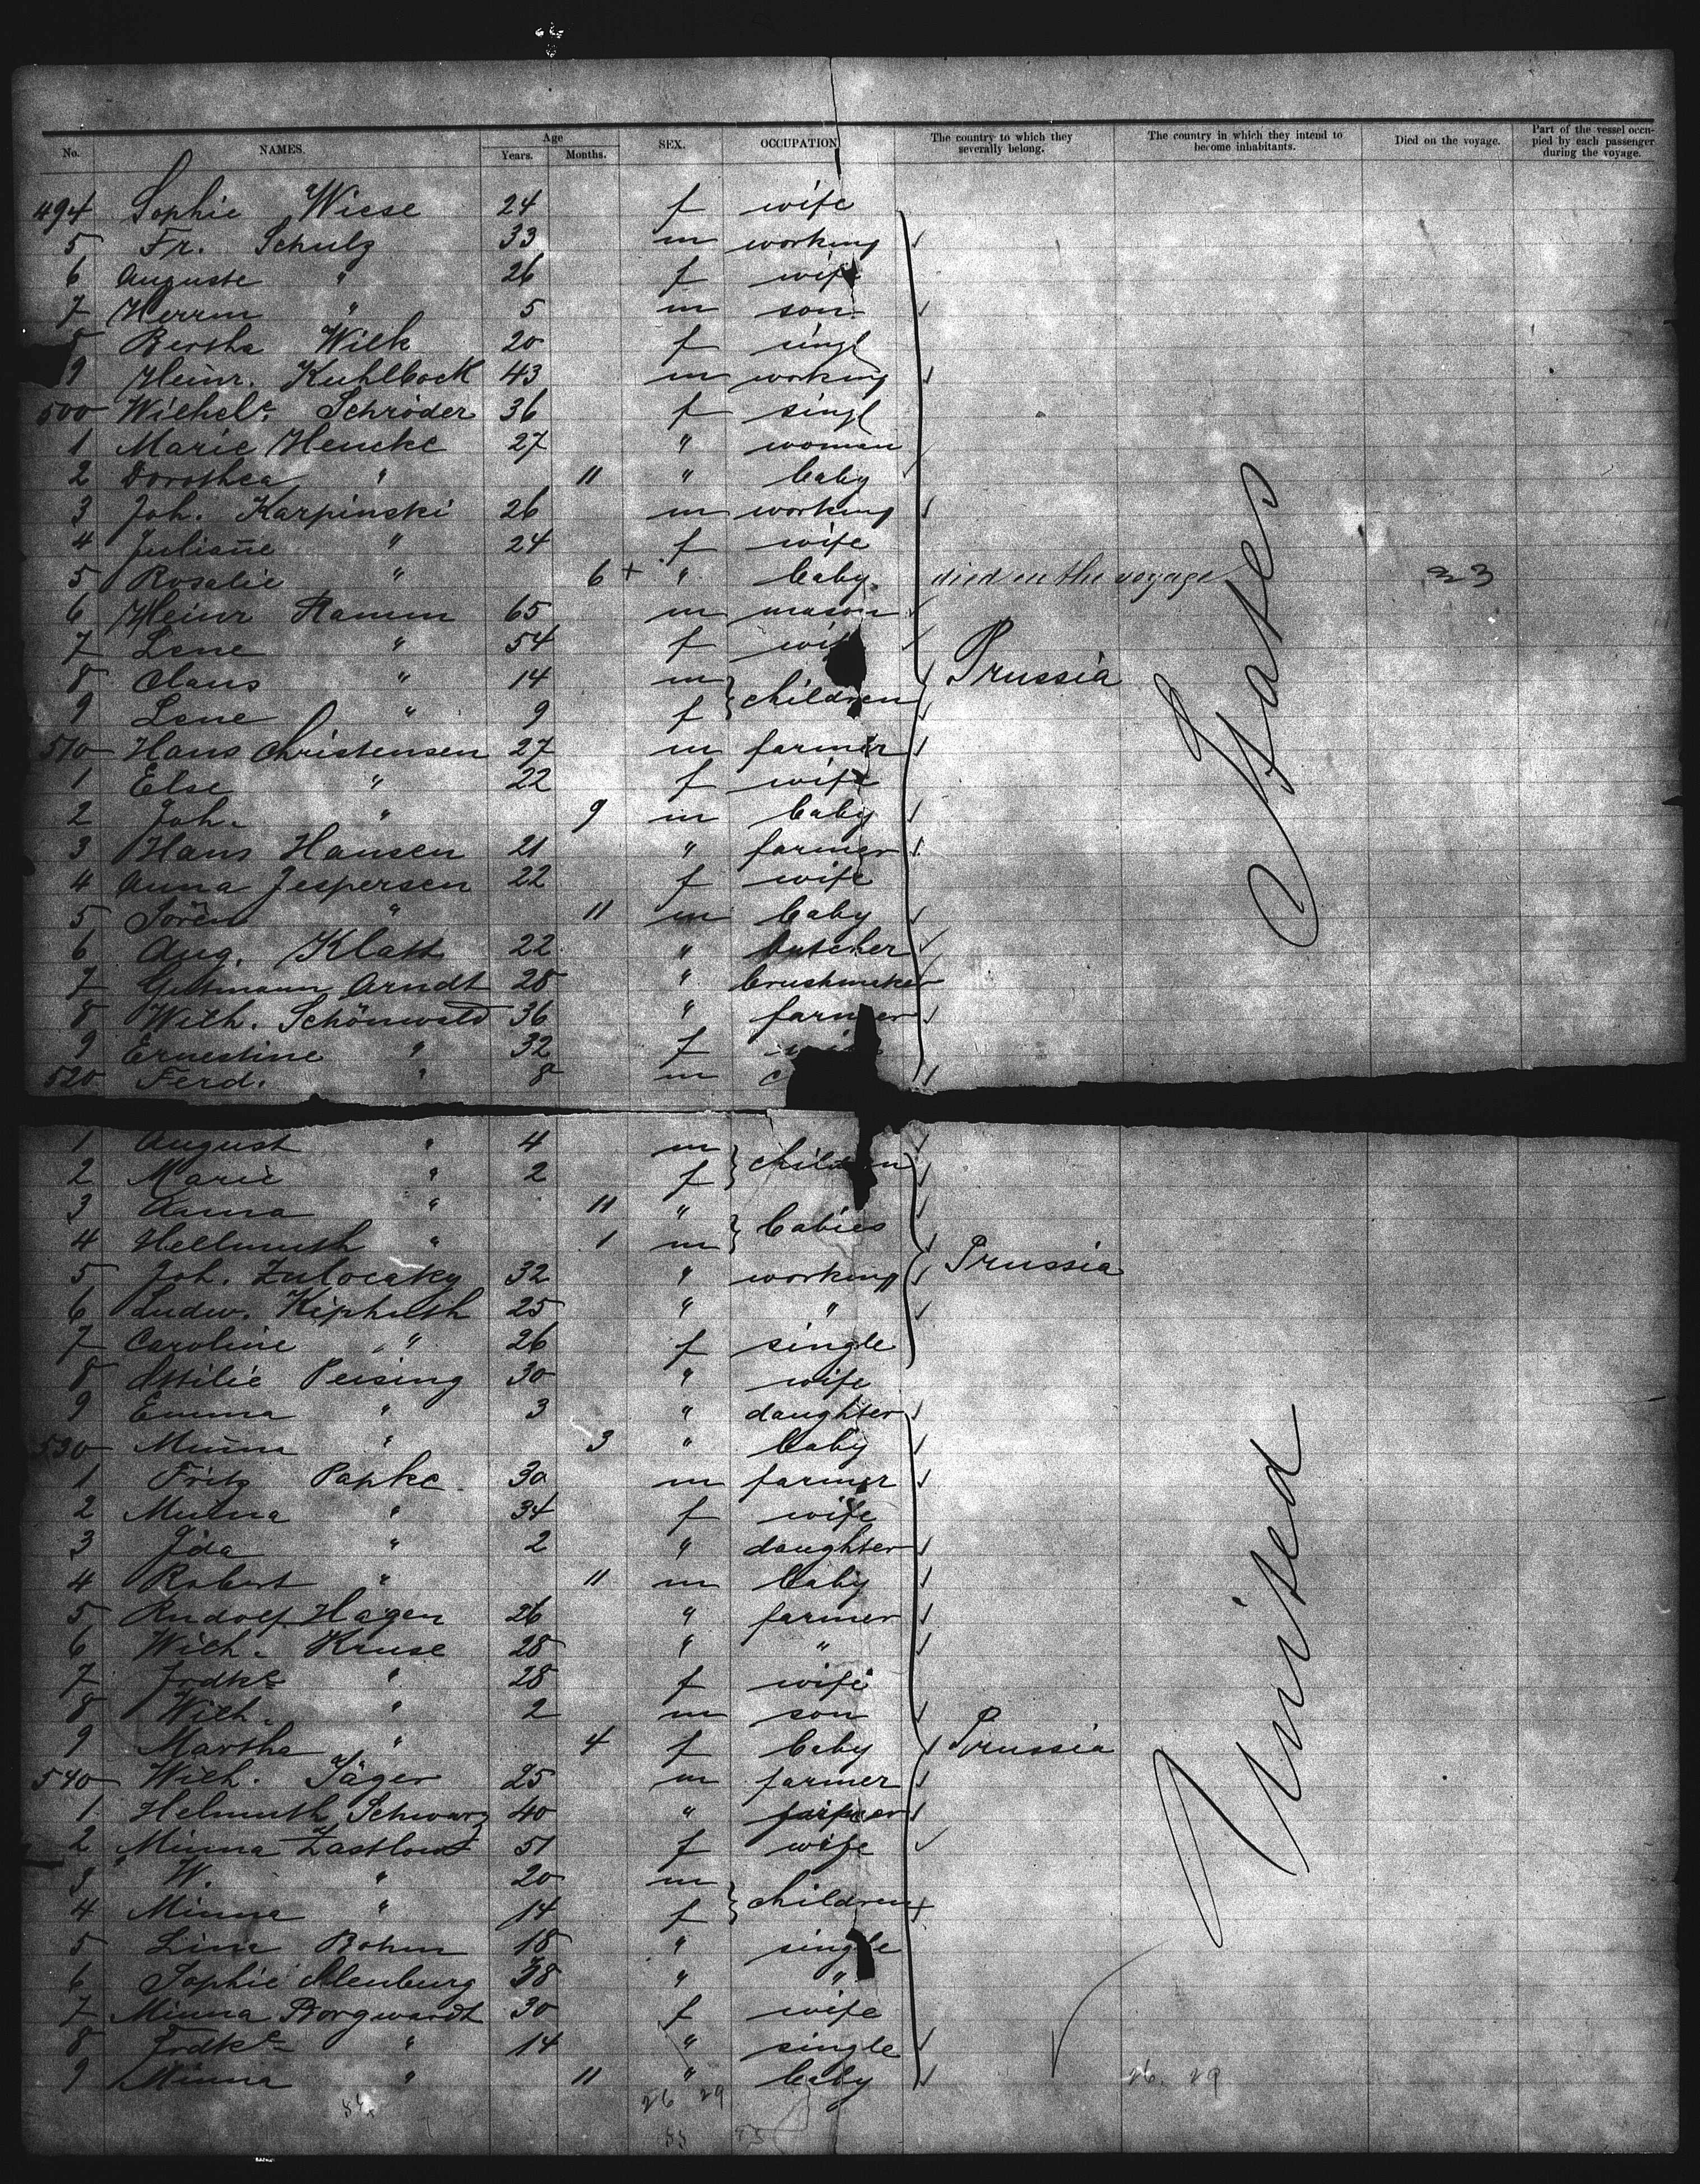 No. NAMES. Age Years. Months. SEX. OCCUPATION The country to which they severally belong. The country in which they intend to become inhabitants. Died on the voyage. Part of the vessel occupied by each passenger during the voyage.
494 Sophie Wiese 24 f wife
5 Fr. Schulz 33 m working
6 Auguste " 26 f wife
7 Herrm " 5 m son
8 Bertha Wilk 20 f singl
9 Heinr. Kuhlbock 43 m working
500 Wilhele. Schröder 36 f singl
1 Marie Hencke 27 " woman
2 Dorothea " 11 " baby
3 Joh. Karpinski 26 m working
4 Juliane " 24 f wife
5 Rosalie " 6 + " baby. died on the voyage 33
6 Heinr Ramm 65 m mason
7 Lene " 54 f wife
8 Claus " 14 m children Prussia
9 Lene " 9 f
510 Hans Christensen 27 m farmer
1 Else " 22 f wife
2 Joh. " 9 m baby
3 Hans Hansen 21 " farmer
4 Anna Jespersen 22 f wife
5 Sören " 11 m baby
6 Aug. Klatt 22 " butcher
7 Arndt 28 " brushmaker
8 Wilh. Schönwald 36 " farmer
9 Ernestine " 32 f
520 Ferd. " 8 m
1 August " 4 m children
2 Marie " 2 f
3 Anna " 11 " babies
4 Hellmuth " 1 m
5 Joh. 32 " working Prussia
6 Ludw. Kiphuth 25 " "
7 Caroline " 26 f single
8 Ottilie Peising 30 " wife
9 Emma " 3 " daughter
530 Minna " 3 " baby
1 Fritz Papke 30 m farmer
2 Minna " 34 f wife
3 Ida " 2 " daughter
4 Robert " 11 m baby
5 Rudolf Hagen 26 " farmer
6 Wilh. Kruse 28 " "
7 Frdke " 28 f wife
8 Wilh. " 2 m son
9 Martha " 4 f baby Prussia
540 Wilh. Jäger 25 m farmer
1 Helmuth Schwarz 40 " farmer
2 Minna Zastlow 51 f wife
3 W. " 20 m children
4 Minna " 14 f
5 Lina Bohm 18 " single
6 Sophie 38 " "
7 Minna Borgwardt 30 f wife
8 Frdke " 14 " single
9 Minna " 11 " baby
26 29
26. 29
United States